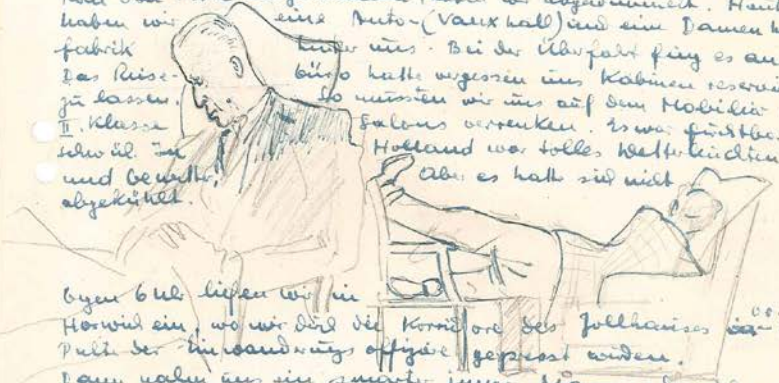 haben wir eine Auto-(Vauxhall) und eine Damen h
fabrik hinter uns. Bei der Überfahrt fing es an
Das Reise- büro hatte vergessen uns Kabinen reserv
zu lassen. So mussten wir uns auf dem Mobiliar
II. Klasse Salons verrenken. Es war furchtbar
schwül. In Holland war tolles Wetterleuchten
und Gewitter, Aber es hatte sich nicht
abgekühlt.
Gegen 6 Uhr liefen wir in
Harwich ein, wo wir durch die Korridore des Zollhauses
Pulte der Einwanderungsoffiziere gepresst wurden.
Dann nahm uns ein smarter junger